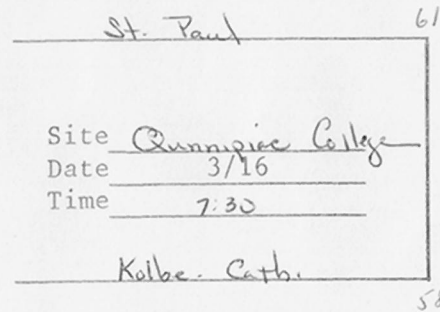 St. Paul 61
Site Qunnipiac College
Date 3/16
Time 7:30
Kolbe. Cath.
58